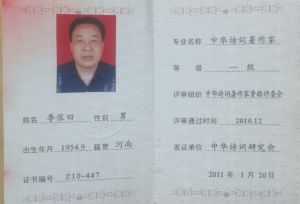 姓名 李保田 性别 男
出生年月 1954.9 籍贯 河南
证书编号 Z10-447
专业名称 中华诗词著作家
等级 一级
评审组织 中华诗词著作家资格评委会
评审通过时间 2010.12
发证单位 中华诗词研究会
2011年1月20日